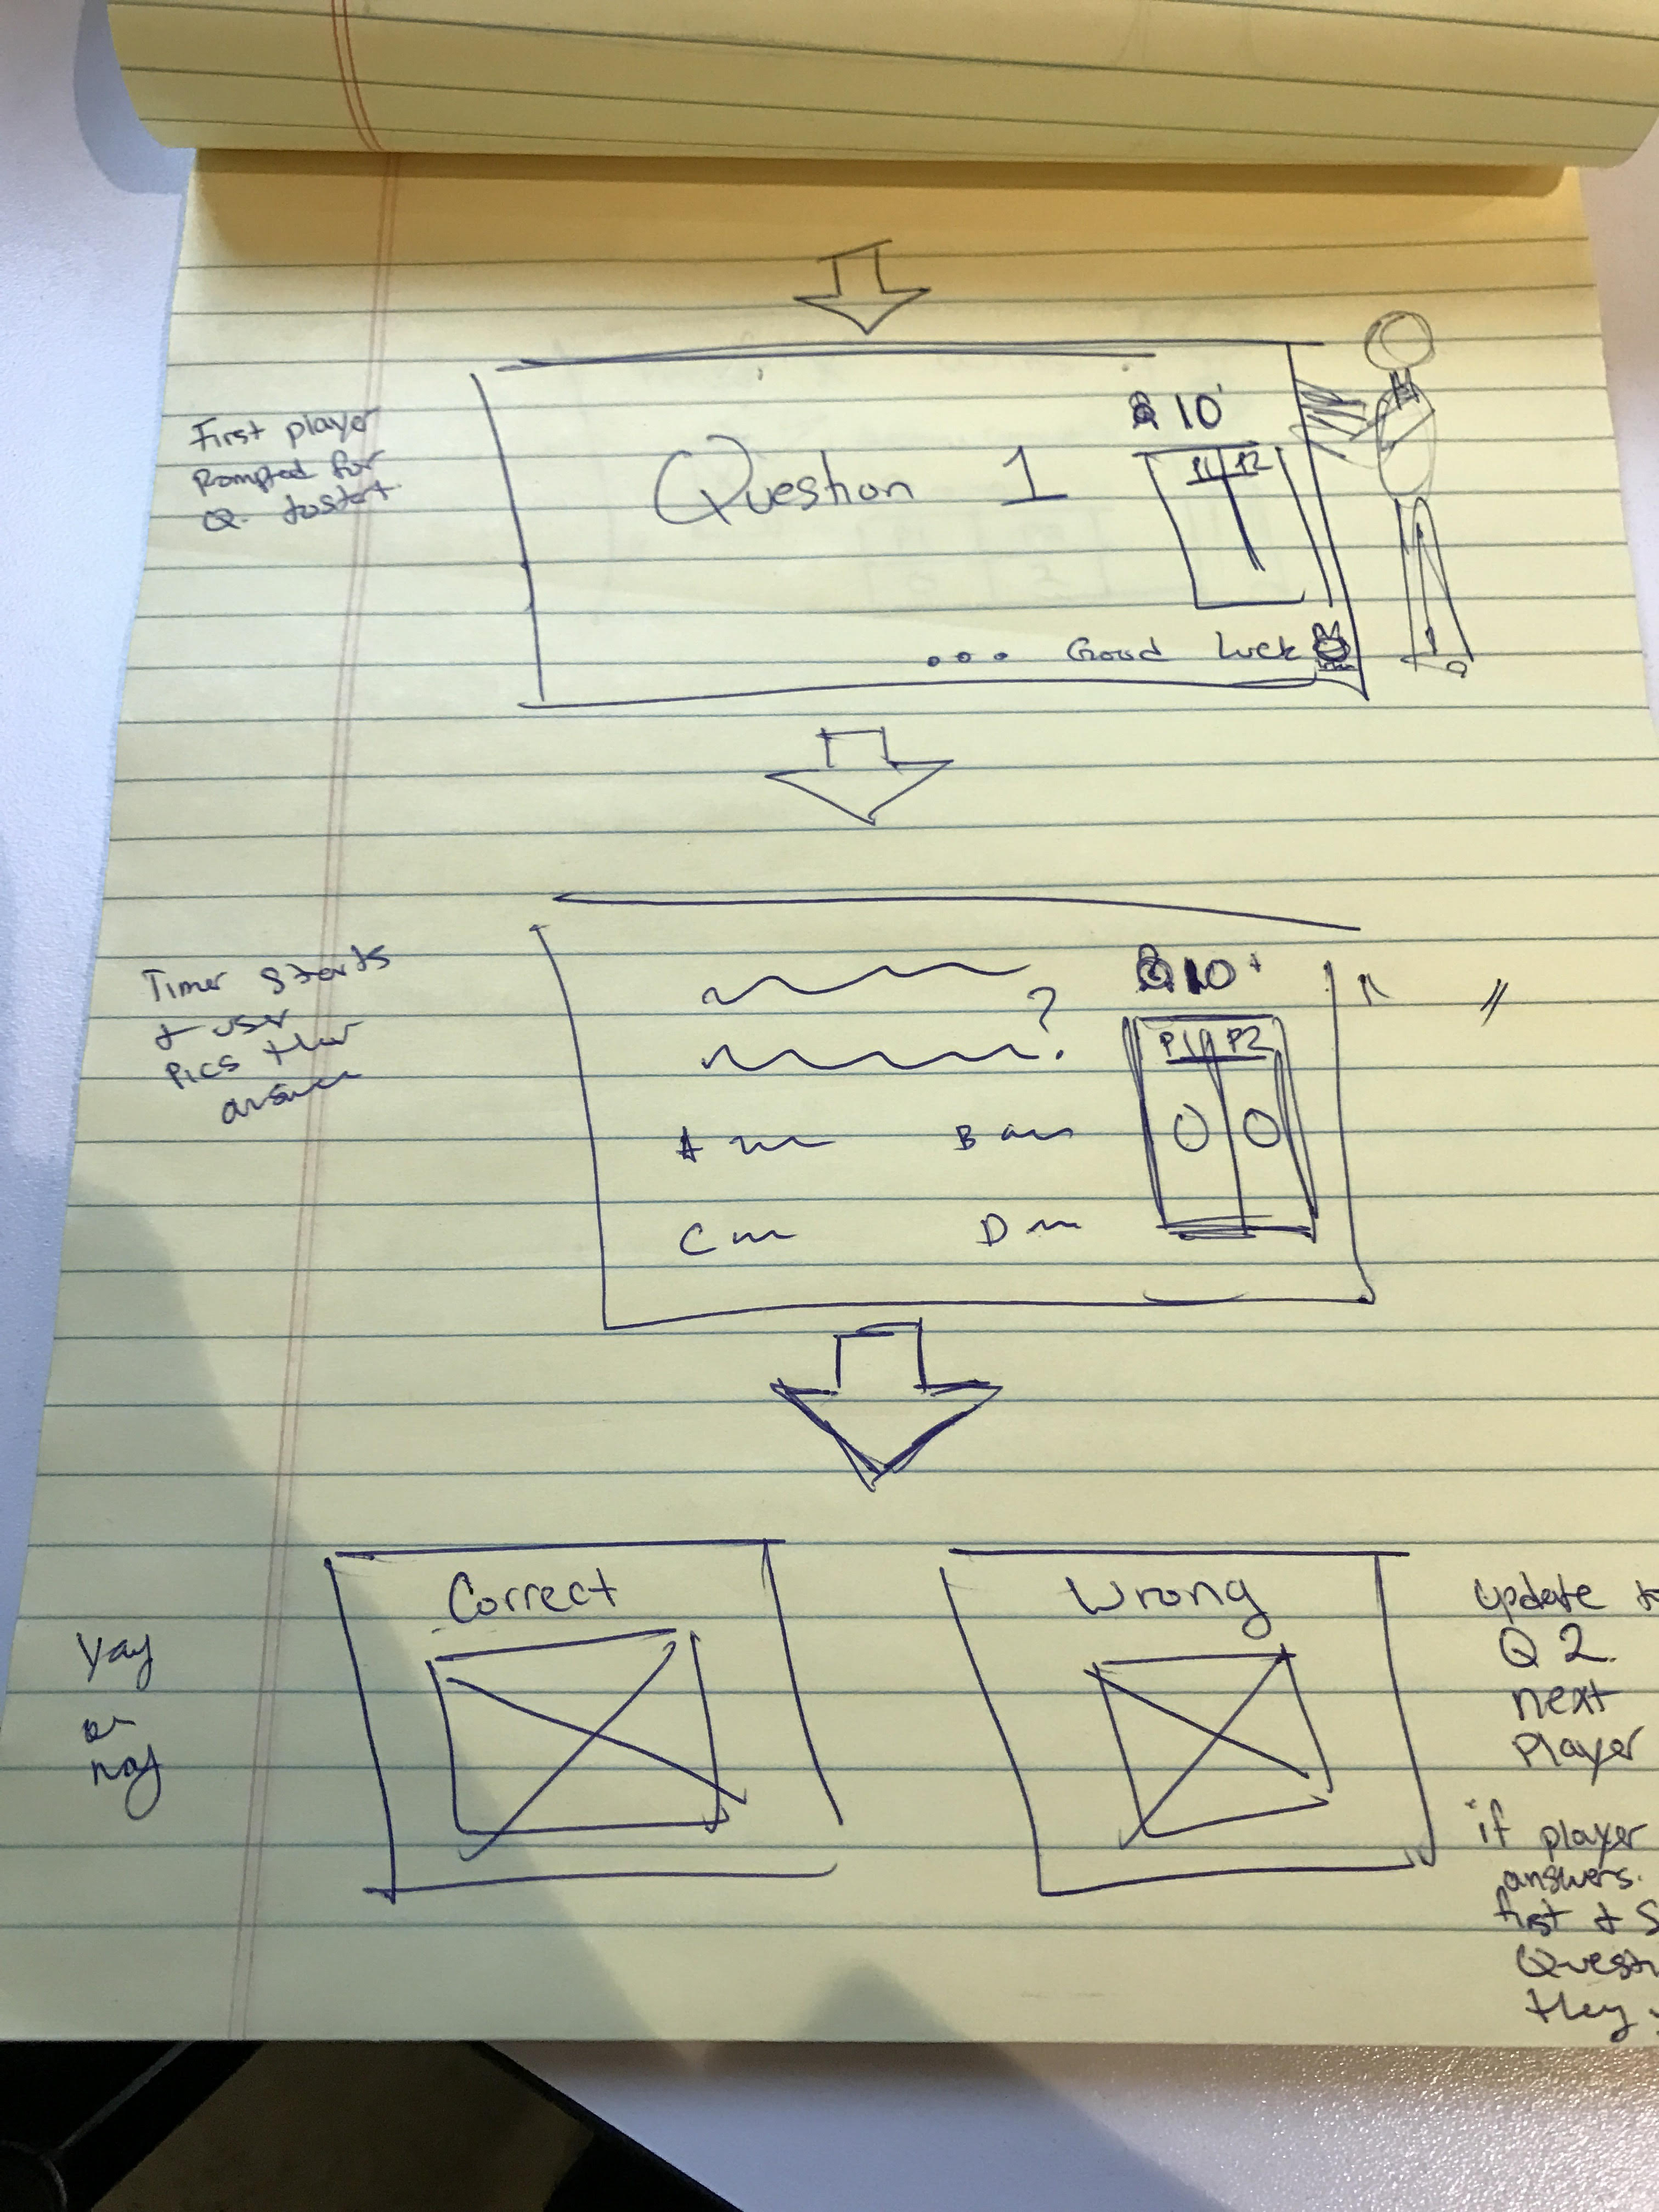 First player
Prompted for
Q. to start
10
Question 1
P1 P2
... Good Luck
Timer starts
+ user
Pics their
answer
10
?
?
P1 P2
A
B
0 0
C
D
Yay
or
nay
Correct
Wrong
update
Q 2.
next
Player
if player
answers.
first +
they